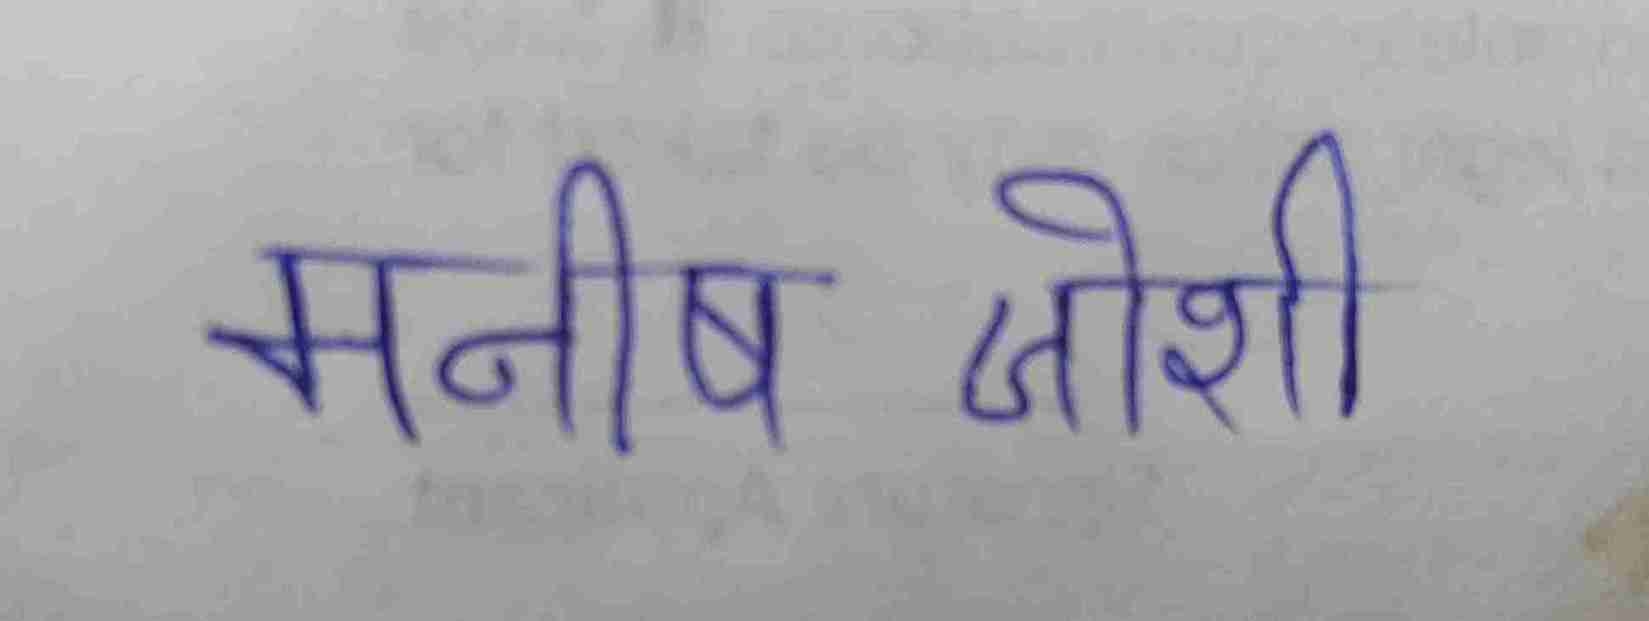 मनीष जोशी